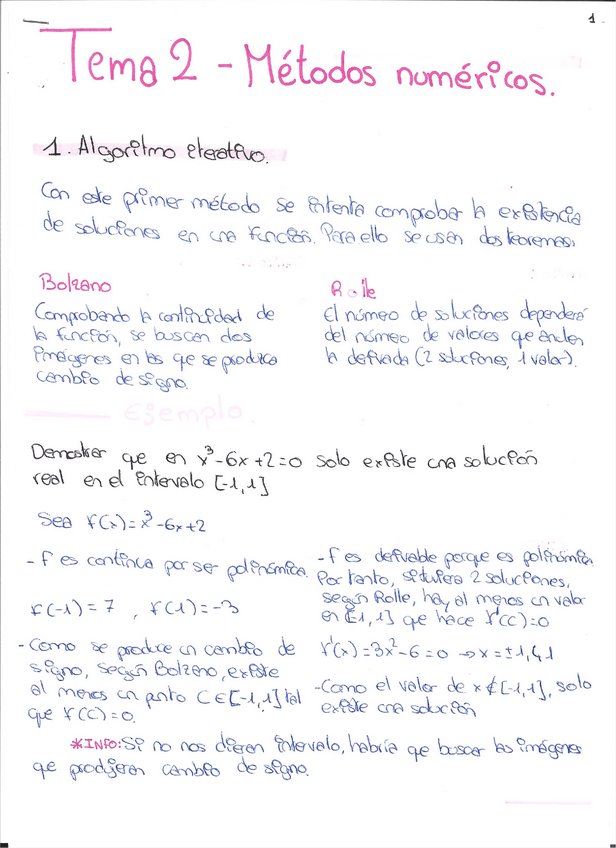 1
Tema 2 - Métodos numéricos.
1. Algoritmo iterativo.
Con este primer método se intenta comprobar la existencia
de soluciones en una función. Para ello se usan dos teoremas:
Bolzano
Comprobando la continuidad de
la función, se buscan dos
imágenes en las que se produzca
cambio de signo.
Rolle
El número de soluciones dependerá
del número de valores que anulen
la derivada (2 soluciones, 1 valor).
Ejemplo.
Demostrar que en x³-6x+2=0 solo existe una solución
real en el intervalo [-1,1]
Sea f(x)=x³-6x+2
- f es continua por ser polinómica.
f(-1)=7 , f(1)=-3
- Como se produce un cambio de
signo, según Bolzano, existe
al menos un punto C∈[-1,1] tal
que f(C)=0.
- f es derivable porque es polinómica.
Por tanto, si tuviera 2 soluciones,
según Rolle, hay al menos un valor
en [-1,1] que hace f'(C)=0
f'(x)=3x²-6=0 → x=±1,41
- Como el valor de x∉[-1,1], solo
existe una solución
*INFO: Si no nos dieran intervalo, habría que buscar las imágenes
que produjeran cambio de signo.